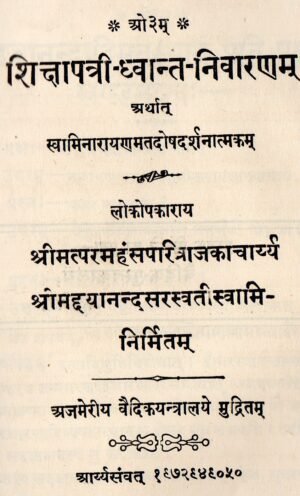 * ओ३म् *
शिक्षापत्री-ध्वान्त-निवारणम्
अर्थात्
स्वामिनारायणमतदोषदर्शनात्मकम्
लोकोपकाराय
श्रीमत्परमहंसपरिव्राजकाचार्य्य
श्रीमद्दयानन्दसरस्वतीस्वामि-
निर्मितम्
अजमेरीय वैदिकयन्त्रालये मुद्रितम्
आर्य्यसंवत् १९७२९४९०५०